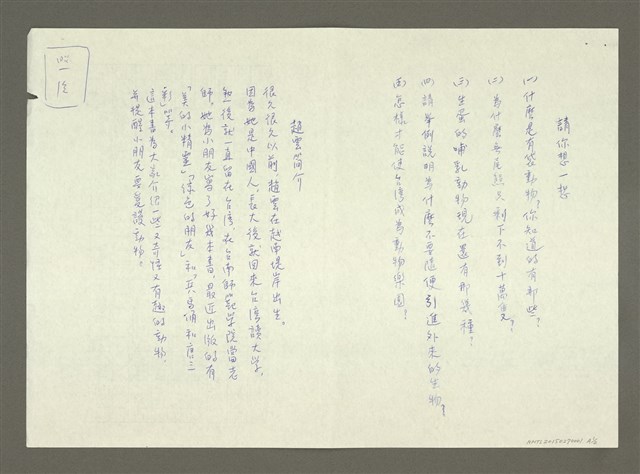 請你想一想
(一)什麼是有袋動物？你知道的有那些？
(二)為什麼無尾熊只剩下不到十萬隻？
(三)生蛋的哺乳動物現在還有那幾種？
(四)請舉例說明為什麼不要隨便引進外來的生物？
(五)怎樣才能使台灣成為動物樂園？
趙雲簡介
很久很久以前，趙雲在越南堤岸出生。
因為她是中國人，長大後就回來台灣讀大學。
然後就一直留在台灣，在台南師範學院當老
師。她為小朋友寫了好幾本書，最近出版的有
「美的小精靈」「綠色的朋友」和「兵馬俑和唐三
彩」等。
這本書為大家介紹一些又奇怪又有趣的動物，
並提醒小朋友要愛護動物。